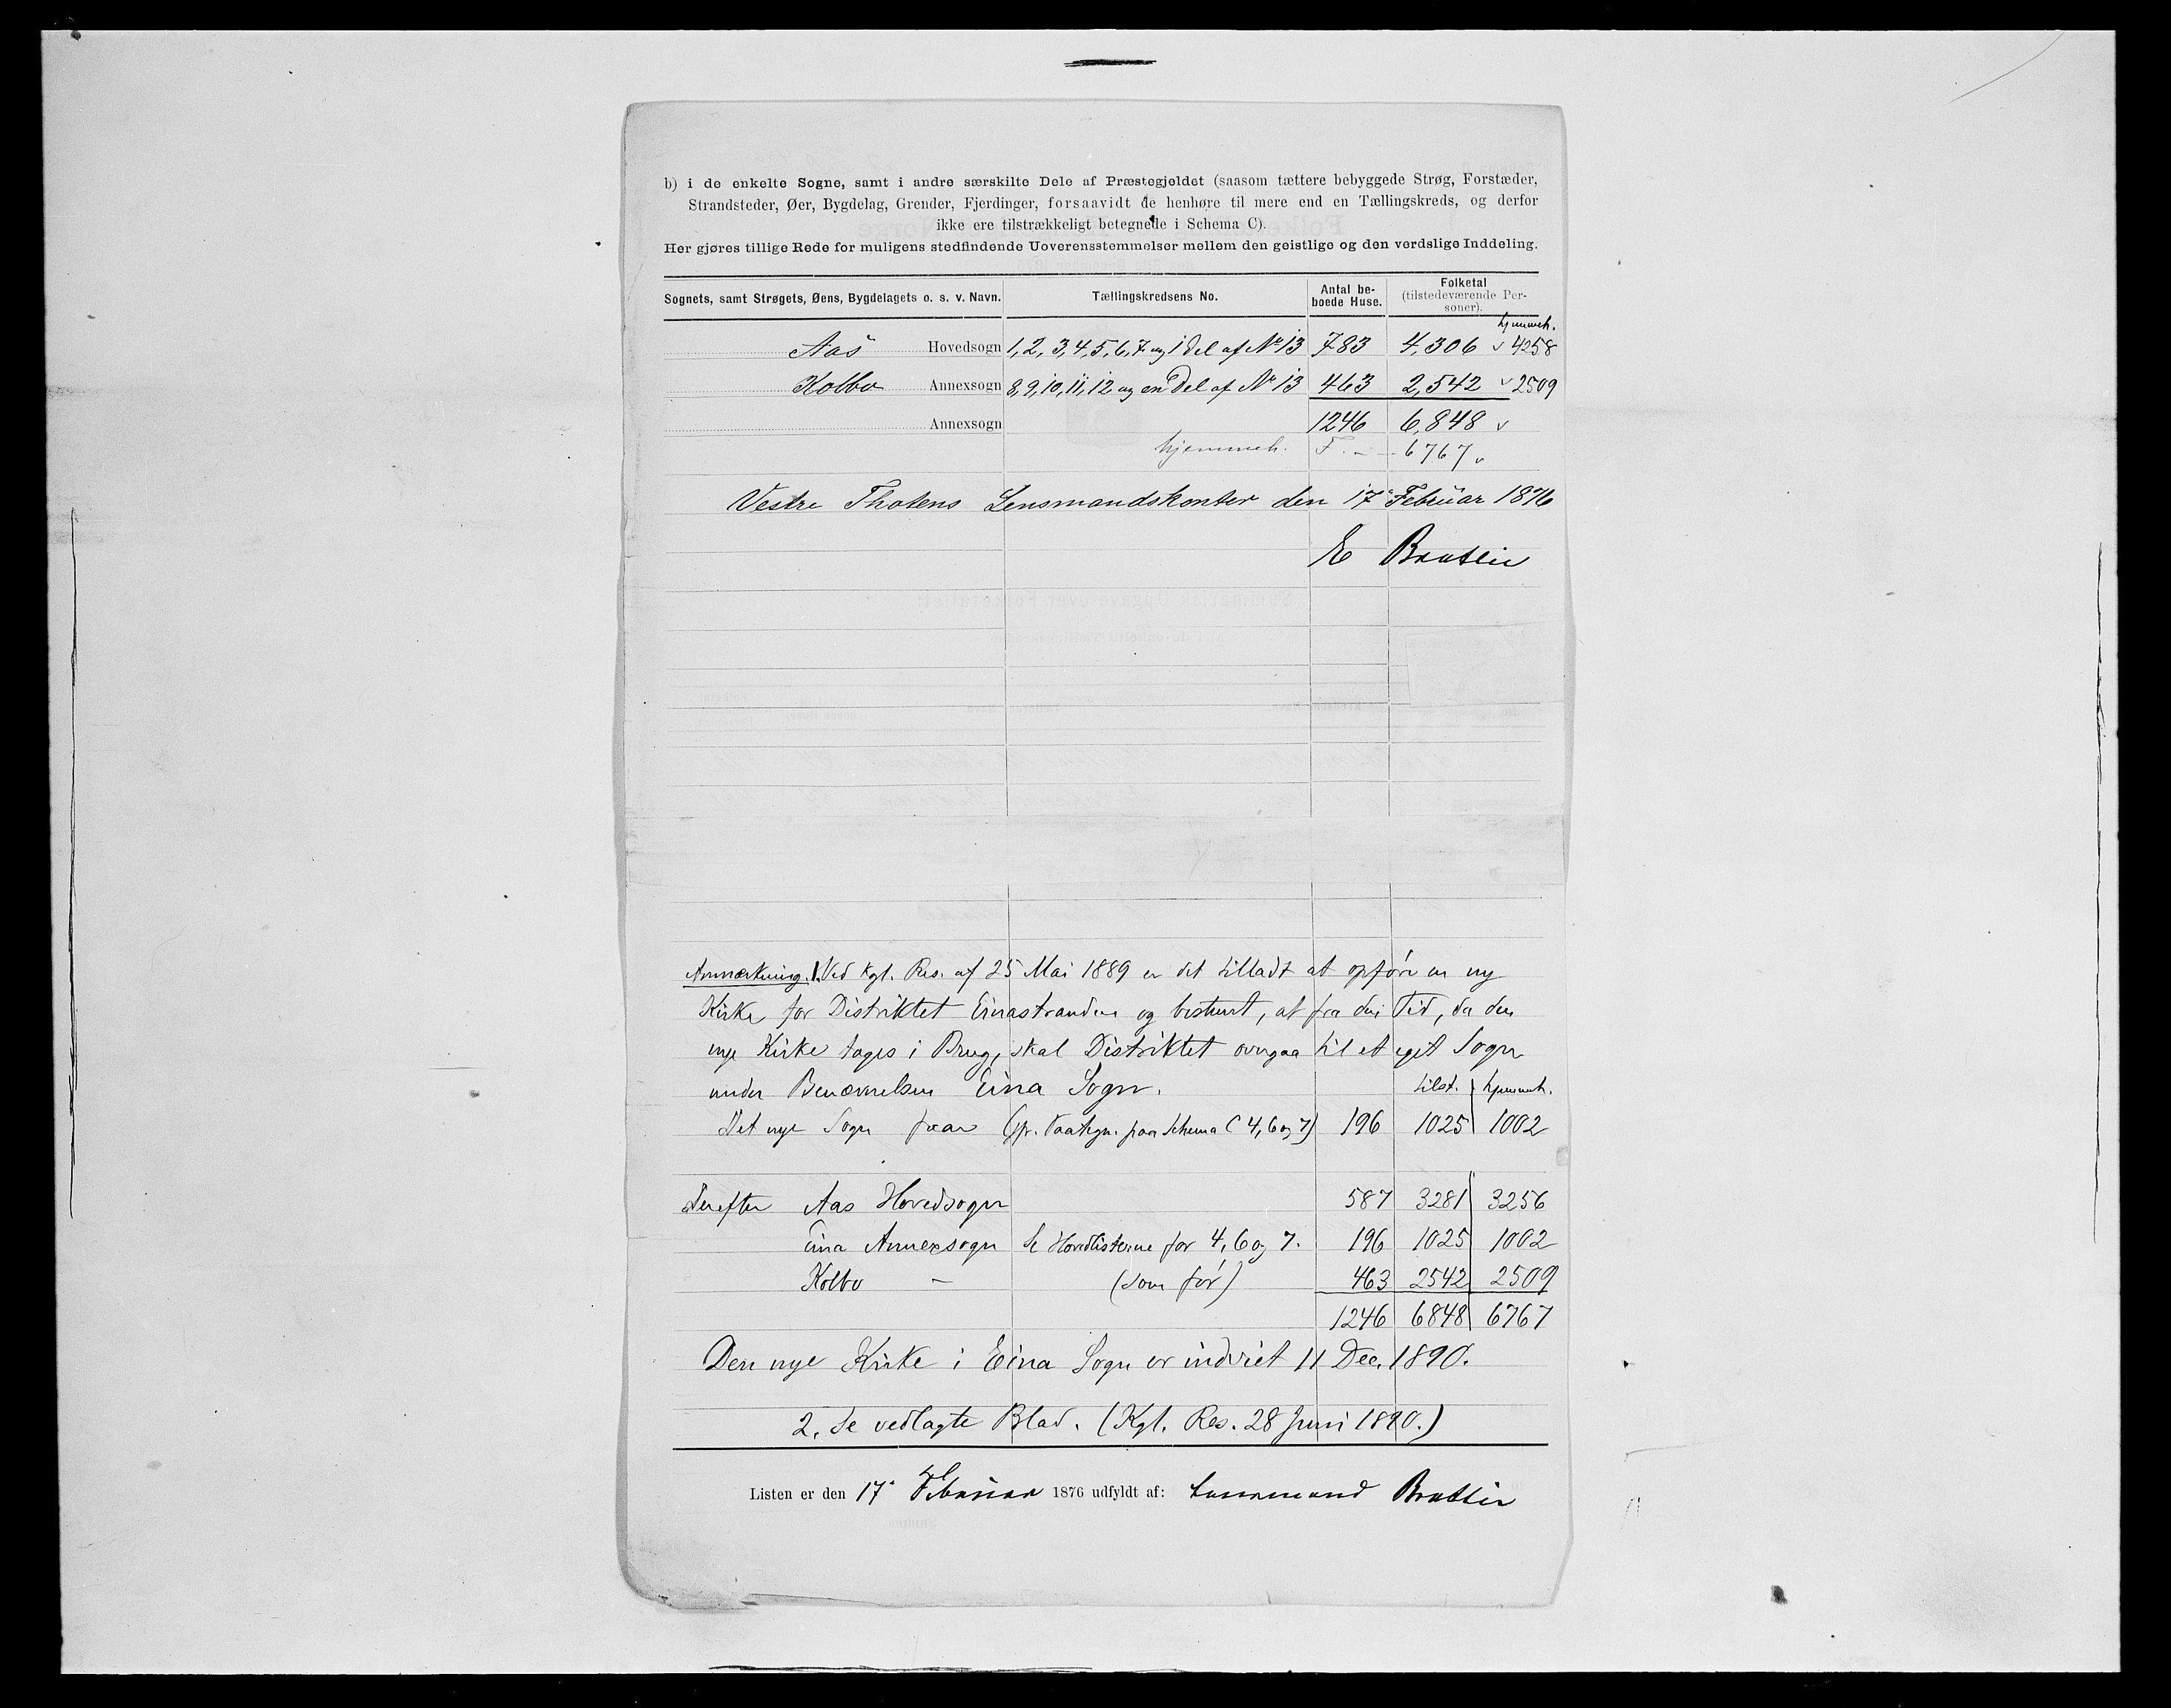 b) i de enkelte Sogne, samt i andre særskilte Dele af Præstegjeldet (saasom tættere bebyggede Strøg, Forstæder,
Strandsteder, Øer, Bygdelag, Grender, Fjerdinger, forsaavidt de henhøre til mere end en Tællingskreds, og derfor
ikke ere tilstrækkeligt betegnede i Schema C).
Her gjøres tillige Rede for muligens stedfindende Uoverensstemmelser mellem den geistlige og den verdslige Inddeling.
Sognets, samt Strøgets, Øens, Bygdelagets o. s. v. Navn. Tællingskredsens No. Antal be-boede Huse. Folketal (tilstedeværende Per-soner).
hjemmeh.
Aas Hovedsogn 1, 2, 3, 4, 5, 6, 7 og 1 Del af No 13 783 4,306 v 4258
Kolbo Annexsogn 8, 9, 10, 11, 12 og en Del af No 13 463 2,542 v 2509
Annexsogn 1246 6,848 v
hjemmeh. F. - 6767 v
Vestre Thotens Lensmandskontor den 17 Februar 1876
E Bratlie
Anmærkning. 1. Ved Kgl. Res. af 25 Mai 1889 er det tilladt at opføre en ny
Kirke for Distriktet Einastranden og bestemt, at fra den Tid, da den
nye Kirke tages i Brug, skal Distriktet overgaa til et eget Sogn
under Benævnelsen Eina Sogn. tilst. hjemmeh.
Det nye Sogn faar (pr. Paategn. paa Schema C 4, 6 og 7) 196 1025 1002
Derefter Aas Hovedsogn 587 3281 3256
Eina Annexsogn Se Hovedlisterne for 4, 6 og 7. 196 1025 1002
Kolbo — (som før) 463 2542 2509
1246 6848 6767
Den nye Kirke i Eina Sogn er indviet 11 Dec. 1890.
2. Se vedlagte Blad. (Kgl. Res. 28 Juni 1890.)
Listen er den 17 Februar 1876 udfyldt af: Lensmand Bratlie